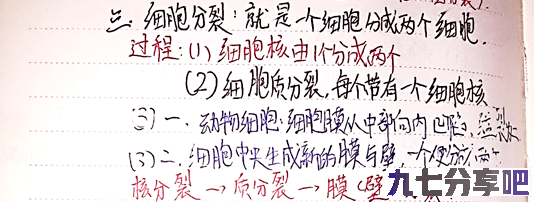 三. 细胞分裂:就是一个细胞分成两个细胞.
过程:(1)细胞核由1个分成两个
(2)细胞质分裂,每个带有一个细胞核
(3)一. 动物细胞:细胞膜从中部向内凹陷,
(3)二. 细胞中央生成新的膜与壁,一个便分成两个
核分裂→质分裂→膜(壁
九七分享吧